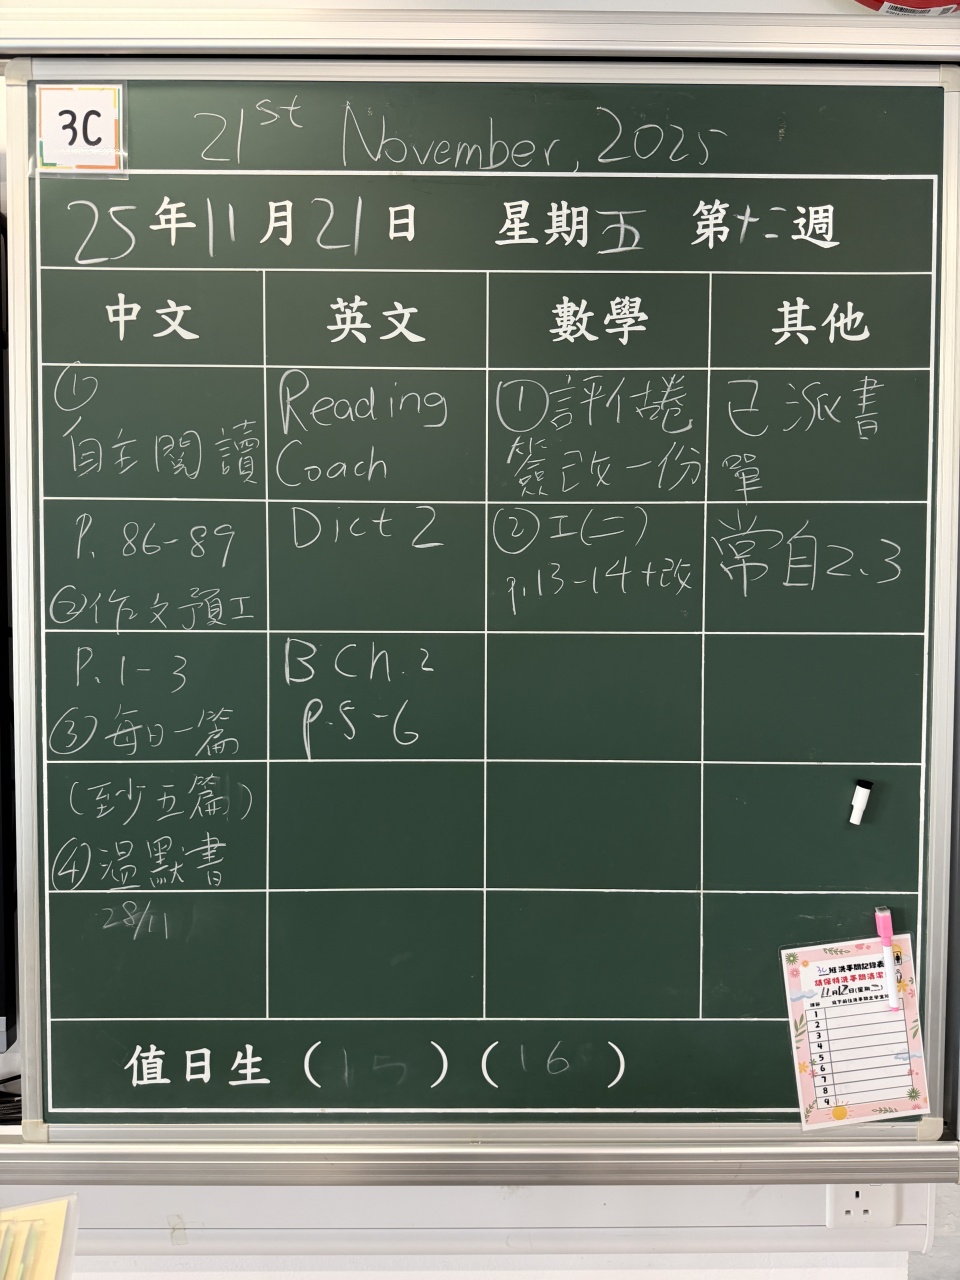 3C
21st November, 2025
25年11月21日 星期五 第十二週
中文 英文 數學 其他
①
自主閱讀
P. 86-89
②作文預工
P. 1-3
③每日一篇
(至少五篇)
④溫默書
28/11
Reading
Coach
Dict 2
B Ch. 2
p.5-6
①評估卷
簽改一份
②工(二)
p.13-14+改
已派書
單
常自2.3
值日生(15)(16)
3C班洗手間記錄表
請保持洗手間清潔
11月12日(星期三)
1
2
3
4
5
6
7
8
9